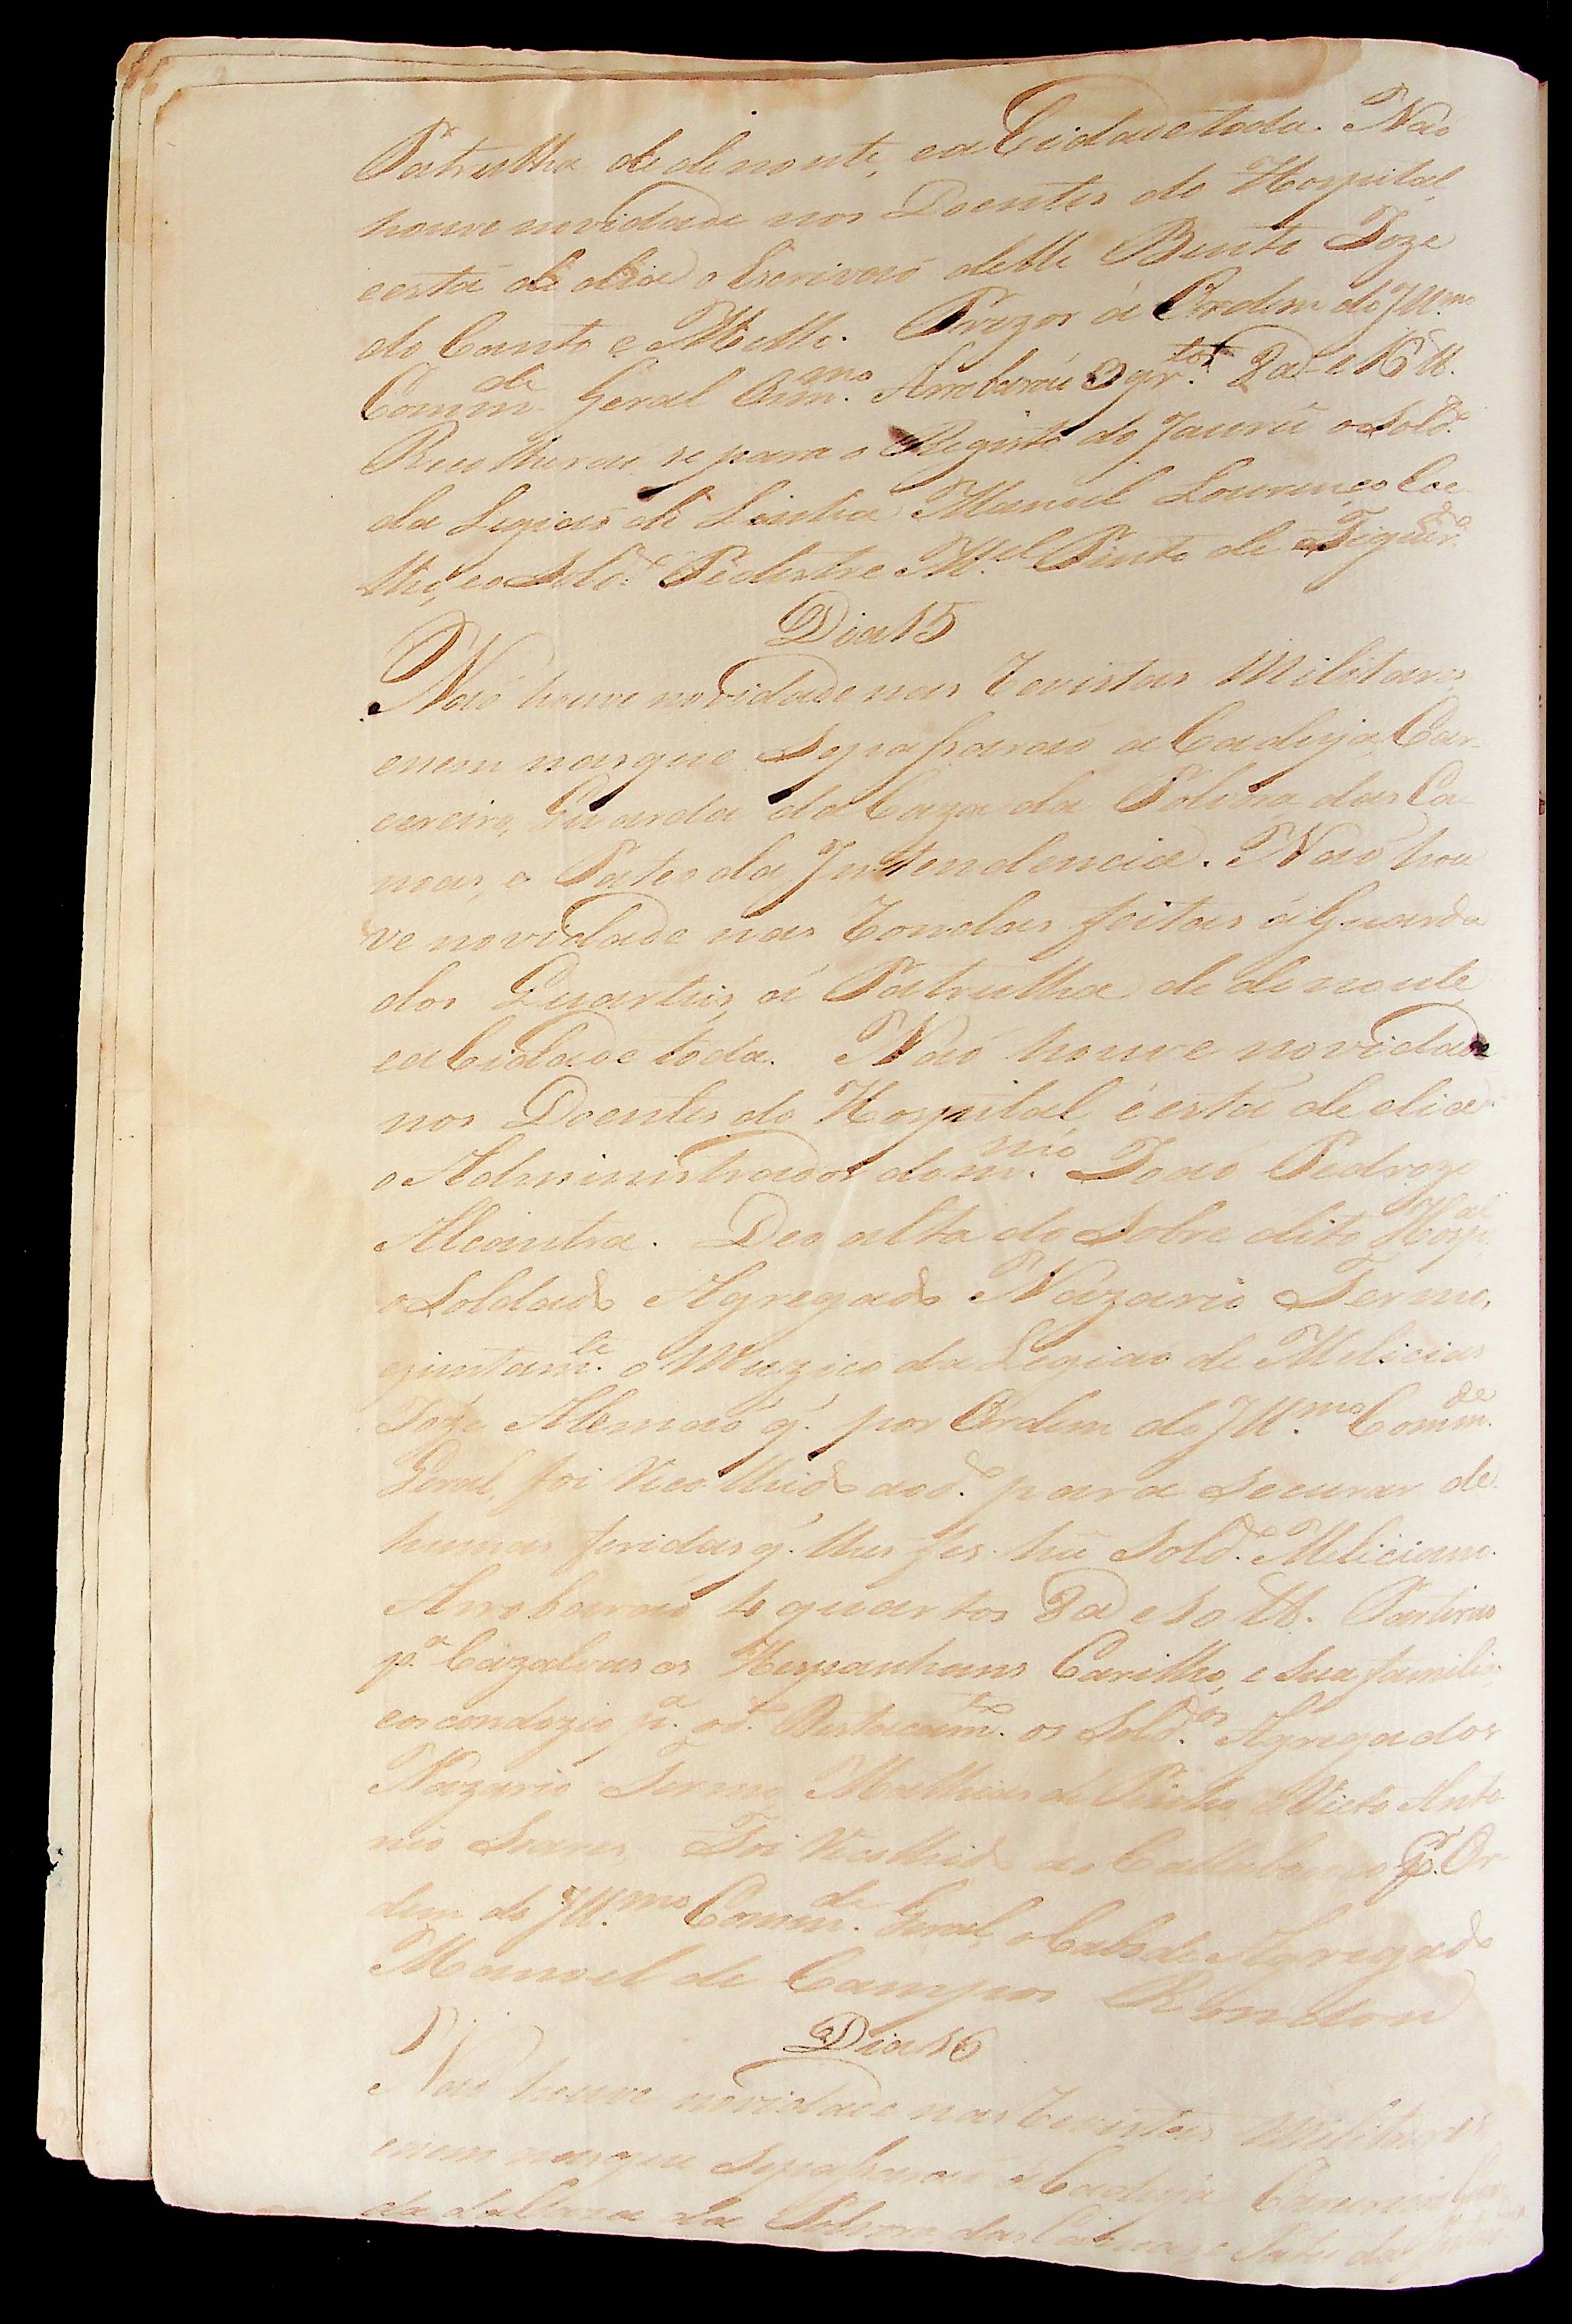 Patrulha de de noute, ea Cidade toda. Naõ
houve novidade nos Doentes do Hospital,
eestá de dia o Escrivaõ delle Bento Joze
do Canto e Mello. Prezos á Ordem do Ill.mo
Comm.de Geral Arrobaraõ 3 qr.tos 2 a e 16 lb.
Recolherao se para o Registo do Jaurú o Sold.o
da Legiaõ de Linha Manoel Lourenço Coe
lho, eo Sold.o Pedestre M.el Pinto de Figuer.do
Dia 15
Naõ houve novidade nas Revistas Militares,
enem nasque Sepaſsaraõ a Cadeya, Car-
cereiro, Guarda da Caza da Polvora, das Ca
noas, e Pateo da Intendencia. Naõ hou
ve novidade nas Rondas feitas áGuarda
dos Quarteis, á Patrulha de de noute,
ea Cidade toda. Naõ houve novidade
nos Doentes do Hospital, e está de dia
o Administrador dom.mo Joaõ Pedrozo
Alcantra. Deo alta do Sobre dito Hosp.al
o Soldado Agregado Nazario Termo,
ejuntam.te o Muzico da Legiaõ de Melicias
Joze Alemaõ q̃. por Ordem do Ill.mo Comm.de
Geral, foi Recolhido aod.o para Securar de
humas feridas q̃. lhes fes hũ Sold.o Meliciano.
Arrobaraõ 4 quartos 8 a e 10 lb. Partiraõ
p.a Cazalvas os Hespanhoes Carilho, e Sua familia,
eos condozio p.a od.o Destacam.to os Sold.os Agregados
Nazario Termo, Mathias de Anto
nio Soares. Foi Recolhido ao Callabouço p.r Or
dem do Ill.mo Comm.de Geral, o Cabo de Agregado
Manoel de Campos Rondon
Dia 16
Naõ houve novidade nas Revistas Militares
enem nasque Sepaſsaraõ a Cadeya Carcereiro Guar
da da Caza da Polvora das Canoas, e Pateo da